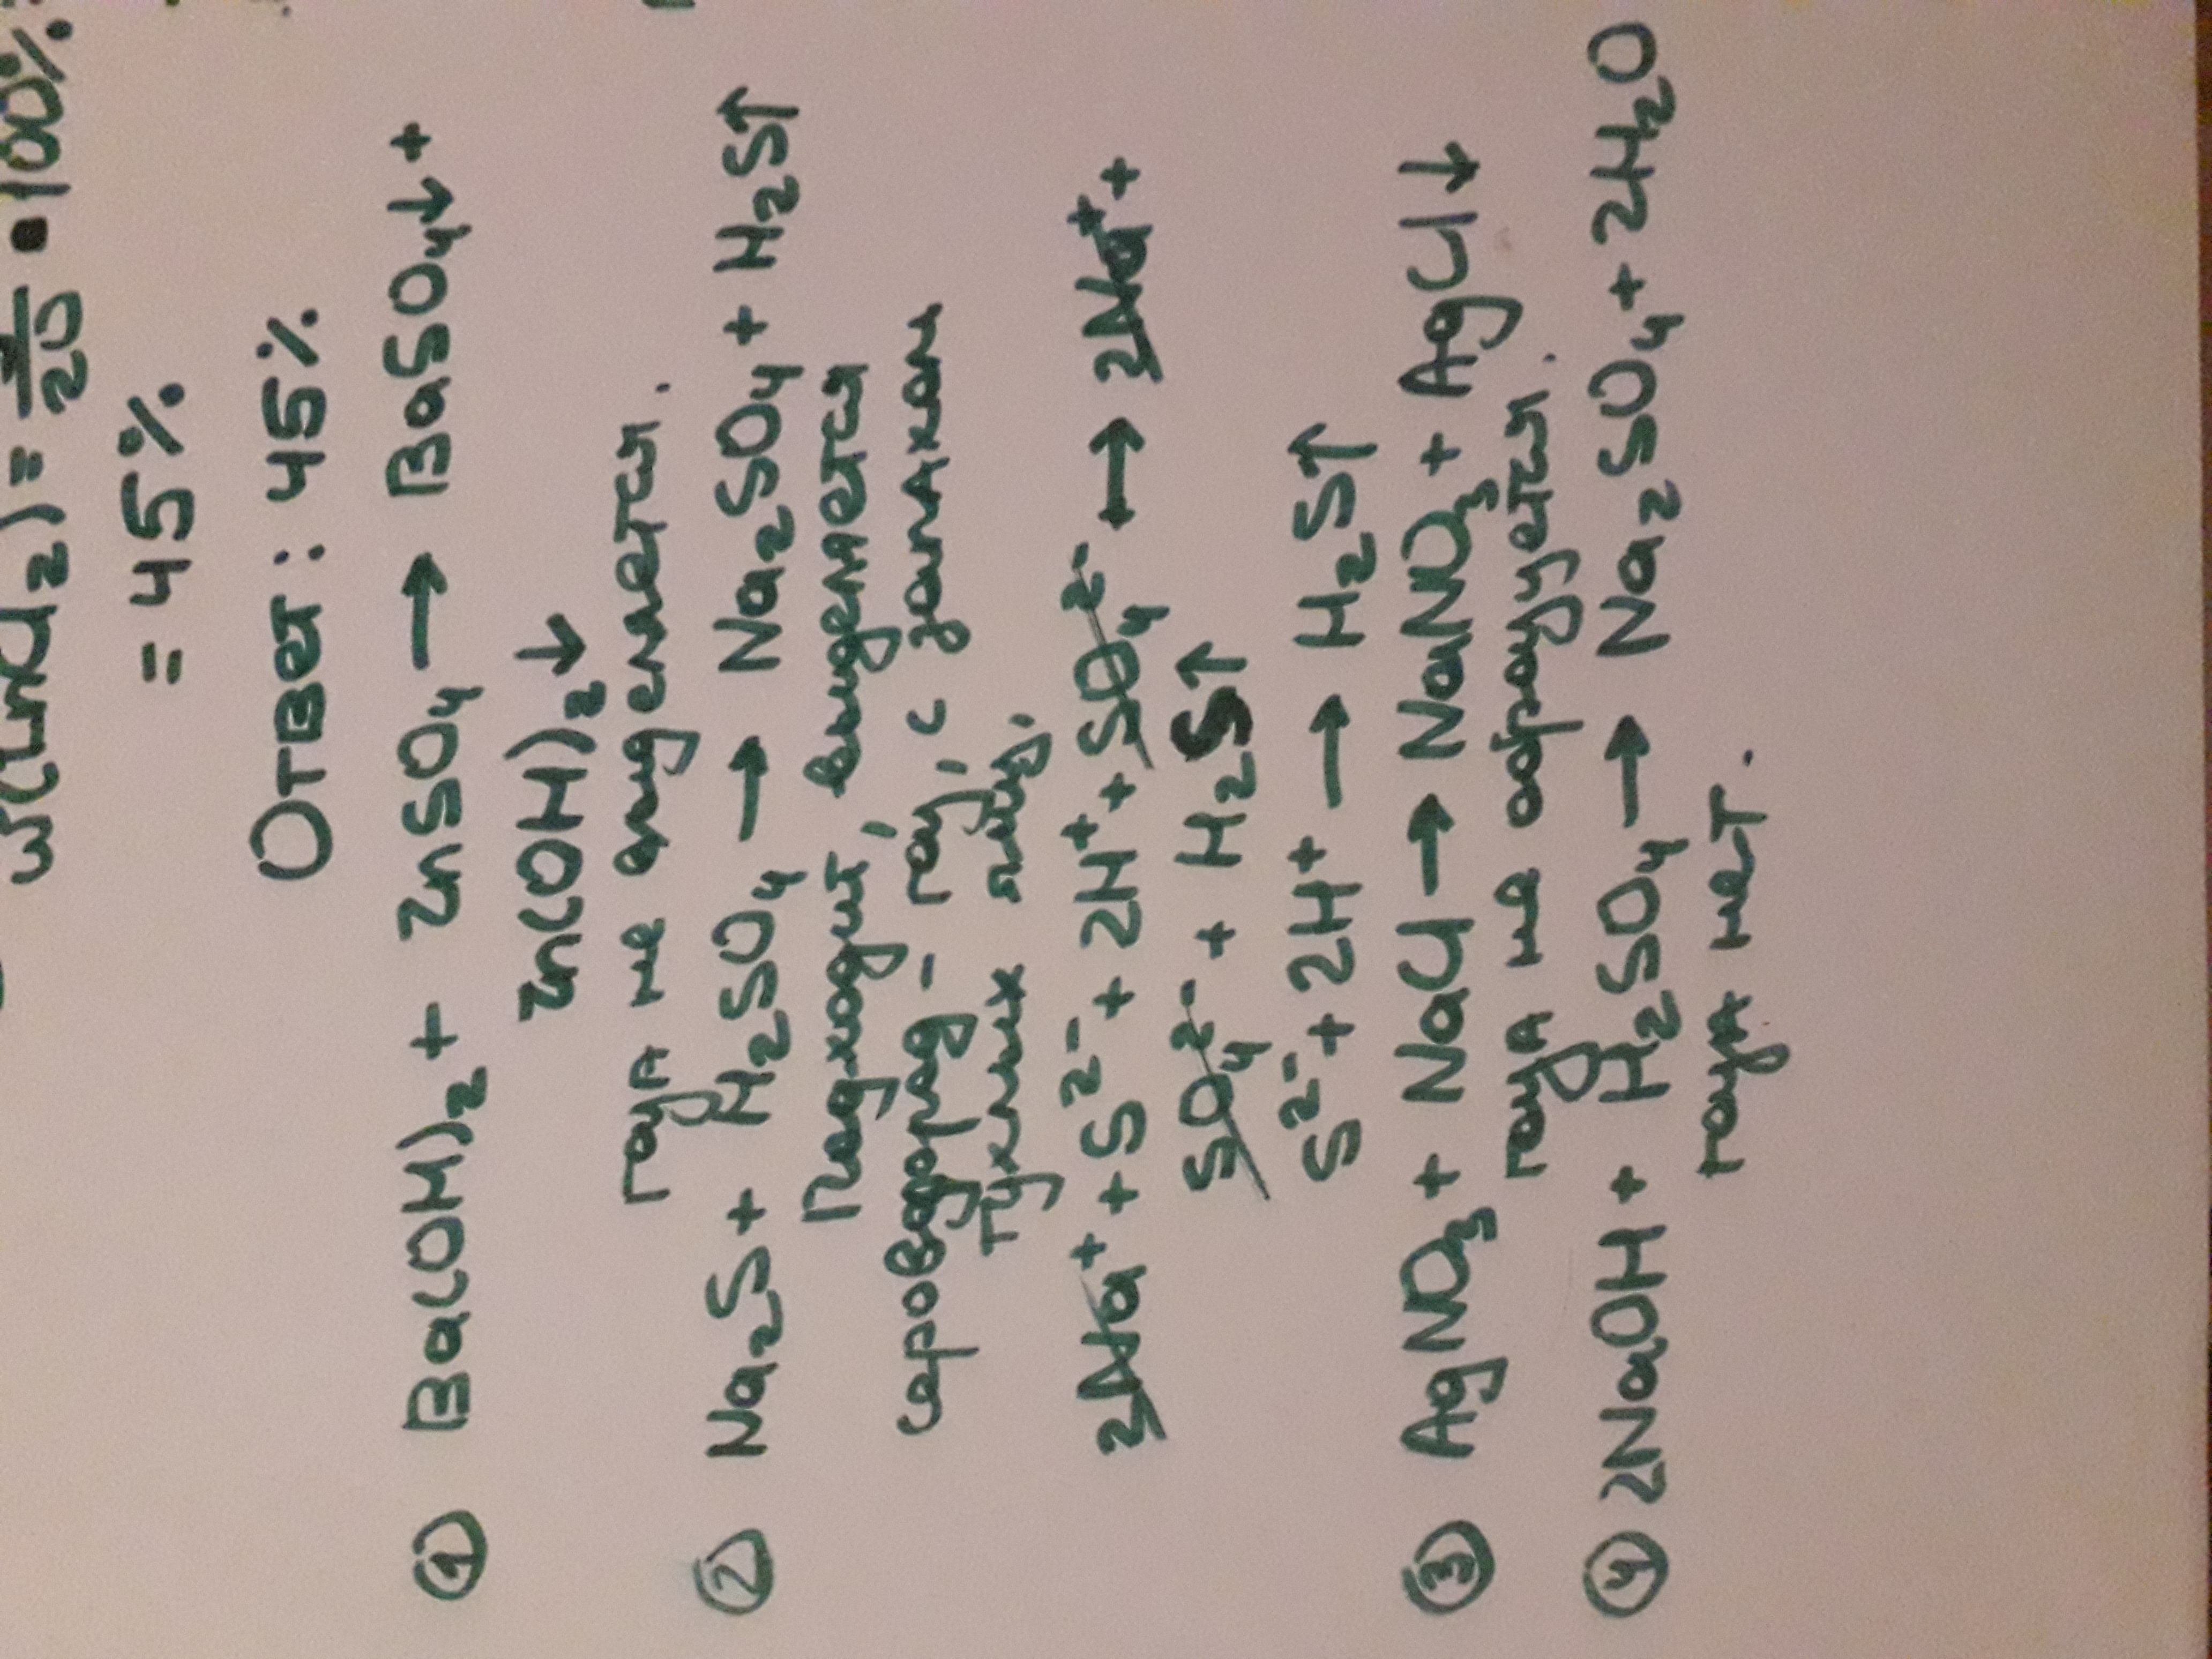 w(ZnCl₂) = /20 • 100%
= 45%
Ответ: 45%
① Ba(OH)₂ + ZnSO₄ → BaSO₄↓ +
Zn(OH)₂↓
газа не выделяется.
② Na₂S + H₂SO₄ → Na₂SO₄ + H₂S↑
Подходит, выделяется
сероводород - газ, с запахом
тухлых яиц.
2Na⁺ + S²⁻ + 2H⁺ + SO₄²⁻ ↔ 2Na⁺ +
SO₄²⁻ + H₂S↑
S²⁻ + 2H⁺ → H₂S↑
③ AgNO₃ + NaCl → NaNO₃ + AgCl↓
газа не образуется.
④ 2NaOH + H₂SO₄ → Na₂SO₄ + 2H₂O
газа нет.